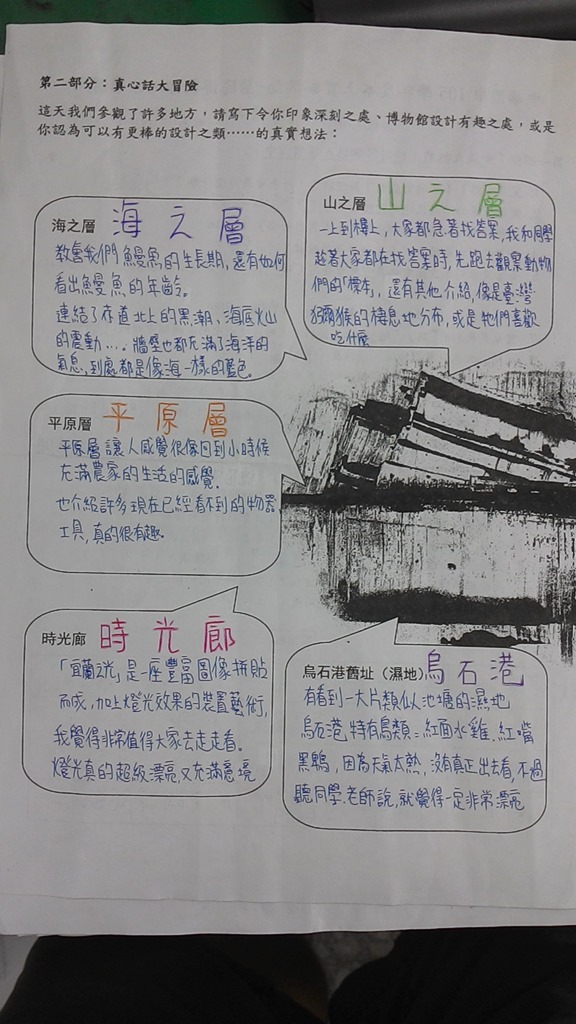 第二部分：真心話大冒險
這天我們參觀了許多地方，請寫下令你印象深刻之處、博物館設計有趣之處，或是
你認為可以有更棒的設計之類……的真實想法：
海之層 海之層
教會我們鰻魚的生長期,還有如何
看出鰻魚的年齡。
連結了赤道北上的黑潮、海底火山
的震動....牆壁也都充滿了海洋的
氣息,到處都是像海一樣的藍色。
山之層 山之層
一上到樓上,大家都急著找答案,我和同學
趁著大家都在找答案時,先跑去觀察動物
們的「標本」,還有其他介紹,像是臺灣
獼猴的棲息地分布,或是牠們喜歡
吃什麼
平原層 平原層
平原層讓人感覺很像回到小時候
充滿農家的生活的感覺.
也介紹許多現在已經看不到的物器
工具,真的很有趣.
時光廊 時光廊
「宜蘭之光」是一座豐富圖像拼貼
而成,加上燈光效果的裝置藝術,
我覺得非常值得大家去走走看。
燈光真的超級漂亮,又充滿意境
烏石港舊址（濕地） 烏石港
有看到一大片類似池塘的濕地
烏石港特有鳥類:紅面水雞.紅嘴
黑鵯,因為天氣太熱,沒有真正出去看,不過
聽同學.老師說,就覺得一定非常漂亮